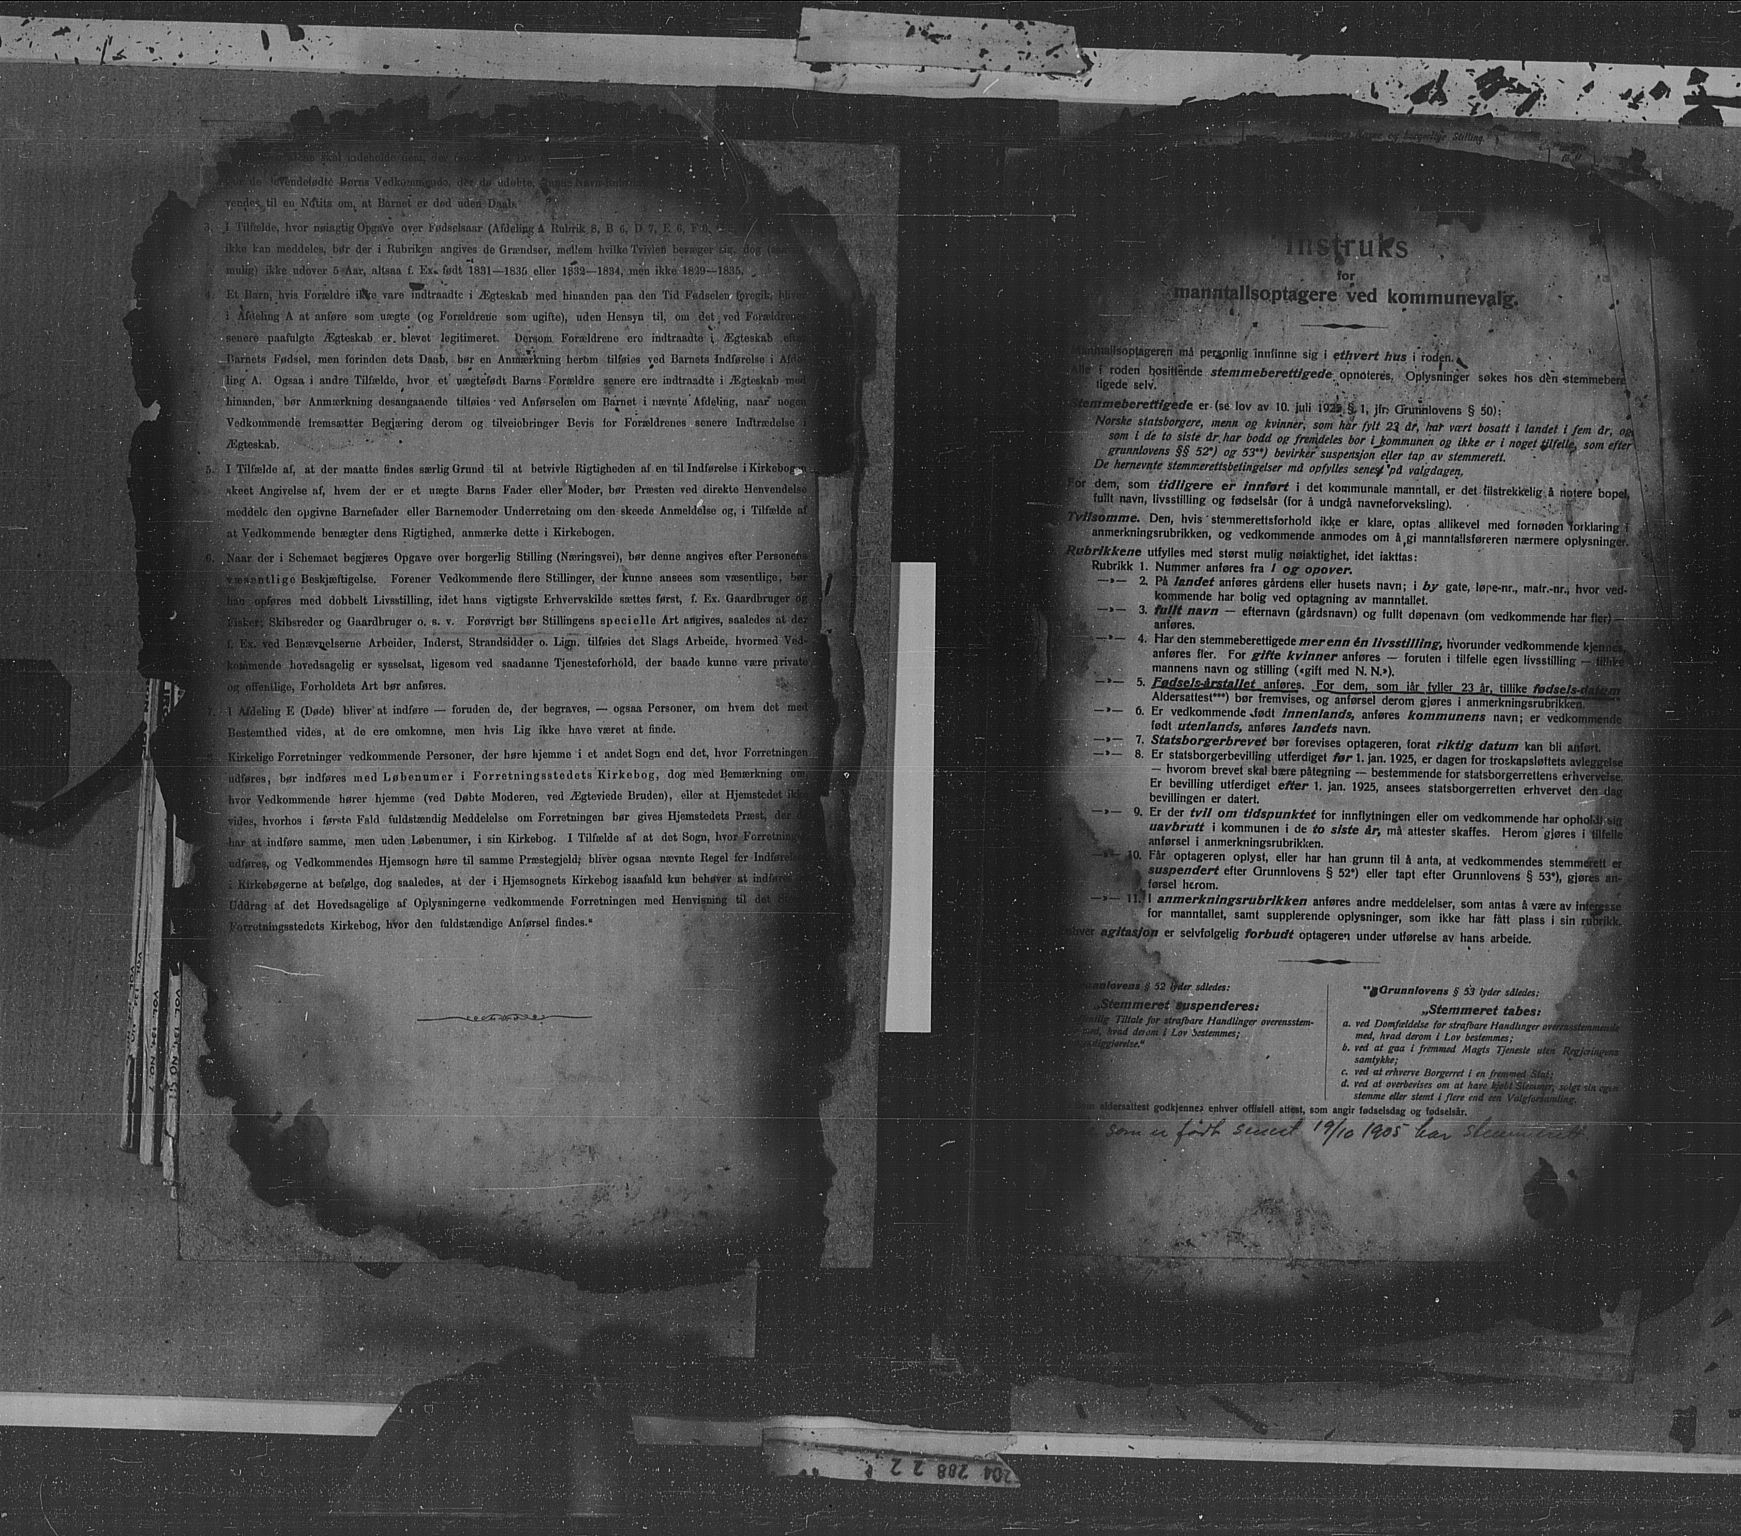 skal indeholde dem, der
levendefødte Børns Vedkommende, der dø udøbte,
vendes til en Notits om, at Barnet er død uden Daab.
3. I Tilfælde, hvor nøiagtig Opgave over Fødselsaar (Afdeling A Rubrik 8, B 6, D 7, E 6, F
ikke kan meddeles, bør der i Rubriken angives de Grændser, mellem hvilke Tvivlen bevæger sig, dog
mulig) ikke udover 5 Aar, altsaa f. Ex. født 1831—1835 eller 1832—1834, men ikke 1829—1835.
4. Et Barn, hvis Forældre ikke vare indtraadte i Ægteskab med hinanden paa den Tid Fødselen foregik, bliver
i Afdeling A at anføre som uægte (og Forældrene som ugifte), uden Hensyn til, om det ved Forældrenes
senere paafulgte Ægteskab er blevet legitimeret. Dersom Forældrene ere indtraadte i Ægteskab efter
Barnets Fødsel, men forinden dets Daab, bør en Anmærkning herom tilføies ved Barnets Indførelse i Afde-
ling A. Ogsaa i andre Tilfælde, hvor et uægtefødt Barns Forældre senere ere indtraadte i Ægteskab med
hinanden, bør Anmærkning desangaaende tilføies ved Anførselen om Barnet i nævnte Afdeling, naar nogen
Vedkommende fremsætter Begjæring derom og tilveiebringer Bevis for Forældrenes senere Indtrædelse i
Ægteskab.
5. I Tilfælde af, at der maatte findes særlig Grund til at betvivle Rigtigheden af en til Indførelse i Kirkebogen
skeet Angivelse af, hvem der er et uægte Barns Fader eller Moder, bør Præsten ved direkte Henvendelse
meddele den opgivne Barnefader eller Barnemoder Underretning om den skeede Anmeldelse og, i Tilfælde af
at Vedkommende benægter dens Rigtighed, anmærke dette i Kirkebogen.
6. Naar der i Schemaet begjæres Opgave over borgerlig Stilling (Næringsvei), bør denne angives efter Personens
væsentlige Beskjæftigelse. Forener Vedkommende flere Stillinger, der kunne ansees som væsentlige, bør
han opføres med dobbelt Livsstilling, idet hans vigtigste Erhvervskilde sættes først, f. Ex. Gaardbruger og
Fisker, Skibsreder og Gaardbruger o. s. v. Forøvrigt bør Stillingens specielle Art angives, saaledes at der
f. Ex. ved Benævnelserne Arbeider, Inderst, Strandsidder o. Lign. tilføies det Slags Arbeide, hvormed Ved-
kommende hovedsagelig er sysselsat, ligesom ved saadanne Tjenesteforhold, der baade kunne være private
og offentlige, Forholdets Art bør anføres.
7. I Afdeling E (Døde) bliver at indføre — foruden de, der begraves, — ogsaa Personer, om hvem det med
Bestemthed vides, at de ere omkomne, men hvis Lig ikke have været at finde.
Kirkelige Forretninger vedkommende Personer, der høre hjemme i et andet Sogn end det, hvor Forretningen
udføres, bør indføres med Løbenumer i Forretningsstedets Kirkebog, dog med Bemærkning om
hvor Vedkommende hører hjemme (ved Døbte Moderen, ved Ægteviede Bruden), eller at Hjemstedet ikke
vides, hvorhos i første Fald fuldstændig Meddelelse om Forretningen bør gives Hjemstedets Præst, der
har at indføre samme, men uden Løbenumer, i sin Kirkebog. I Tilfælde af at det Sogn, hvor Forretningen
udføres, og Vedkommendes Hjemsogn høre til samme Præstegjeld, bliver ogsaa nævnte Regel for Indførelsen
i Kirkebøgerne at befølge, dog saaledes, at der i Hjemsognets Kirkebog isaafald kun behøver at indføres
Uddrag af det Hovedsagelige af Oplysningerne vedkommende Forretningen med Henvisning til det
Forretningsstedets Kirkebog, hvor den fuldstændige Anførsel findes.“
Navne og borgerlige Stilling.
Instruks
for
manntallsoptagere ved kommunevalg.
Manntallsoptageren må personlig innfinne sig i ethvert hus i roden.
Alle i roden hosittende stemmeberettigede opnoteres. Oplysninger søkes hos den stemmebere
tigede selv.
Stemmeberettigede er (se lov av 10. juli 1925 § 1, jfr. Grunnlovens § 50):
Norske statsborgere, menn og kvinner, som har fylt 23 år, har vært bosatt i landet i fem år, og
som i de to siste år har bodd og fremdeles bor i kommunen og ikke er i noget tilfelle, som efter
grunnlovens §§ 52*) og 53**) bevirker suspensjon eller tap av stemmerett.
De hernevnte stemmerettsbetingelser må opfylles senest på valgdagen.
For dem, som tidligere er innført i det kommunale manntall, er det tilstrekkelig å notere bopel,
fullt navn, livsstilling og fødselsår (for å undgå navneforveksling).
Tvilsomme. Den, hvis stemmerettsforhold ikke er klare, optas allikevel med fornøden forklaring i
anmerkningsrubrikken, og vedkommende anmodes om å gi manntallsføreren nærmere oplysninger.
Rubrikkene utfylles med størst mulig nøiaktighet, idet iakttas:
Rubrikk 1. Nummer anføres fra 1 og opover.
—»— 2. På landet anføres gårdens eller husets navn; i by gate, løpe-nr., matr.-nr., hvor ved-
kommende har bolig ved optagning av manntallet.
—»— 3. fullt navn — efternavn (gårdsnavn) og fullt døpenavn (om vedkommende har fler) —
anføres.
—»— 4. Har den stemmeberettigede mer enn én livsstilling, hvorunder vedkommende kjennes,
anføres fler. For gifte kvinner anføres — foruten i tilfelle egen livsstilling — tillike
mannens navn og stilling («gift med N. N.»).
—»— 5. Fødsels-årstallet anføres. For dem, som iår fyller 23 år, tillike fødsels-datum
Aldersattest***) bør fremvises, og anførsel derom gjøres i anmerkningsrubrikken.
—»— 6. Er vedkommende født innenlands, anføres kommunens navn; er vedkommende
født utenlands, anføres landets navn.
—»— 7. Statsborgerbrevet bør forevises optageren, forat riktig datum kan bli anført.
—»— 8. Er statsborgerbevilling utferdiget før 1. jan. 1925, er dagen for troskapsløftets avleggelse
— hvorom brevet skal bære påtegning — bestemmende for statsborgerrettens erhvervelse.
Er bevilling utferdiget efter 1. jan. 1925, ansees statsborgerretten erhvervet den dag
bevillingen er datert.
—»— 9. Er der tvil om tidspunktet for innflytningen eller om vedkommende har opholdt sig
uavbrutt i kommunen i de to siste år, må attester skaffes. Herom gjøres i tilfelle
anførsel i anmerkningsrubrikken.
—»— 10. Får optageren oplyst, eller har han grunn til å anta, at vedkommendes stemmerett er
suspendert efter Grunnlovens § 52*) eller tapt efter Grunnlovens § 53*), gjøres an-
førsel herom.
—»— 11. I anmerkningsrubrikken anføres andre meddelelser, som antas å være av interesse
for manntallet, samt supplerende oplysninger, som ikke har fått plass i sin rubrikk.
agitasjon er selvfølgelig forbudt optageren under utførelse av hans arbeide.
Grunnlovens § 52 lyder således:
„Stemmeret suspenderes:
Tiltale for strafbare Handlinger overensstem-
med, hvad derom i Lov bestemmes;
**) Grunnlovens § 53 lyder således:
„Stemmeret tabes:
a. ved Domfældelse for strafbare Handlinger overensstemmende
med, hvad derom i Lov bestemmes;
b. ved at gaa i fremmed Magts Tjeneste uten Regjeringens
samtykke;
c. ved at erhverve Borgerret i en fremmed Stat;
d. ved at overbevises om at have kjøbt Stemmer, solgt sin egen
stemme eller stemt i flere end een Valgforsamling.
aldersattest godkjennes enhver offisiell attest, som angir fødselsdag og fødselsår.
som er født senest 19/10 1905 har stemmerett.
VOL. 131, NO. 7
204 288 2 2